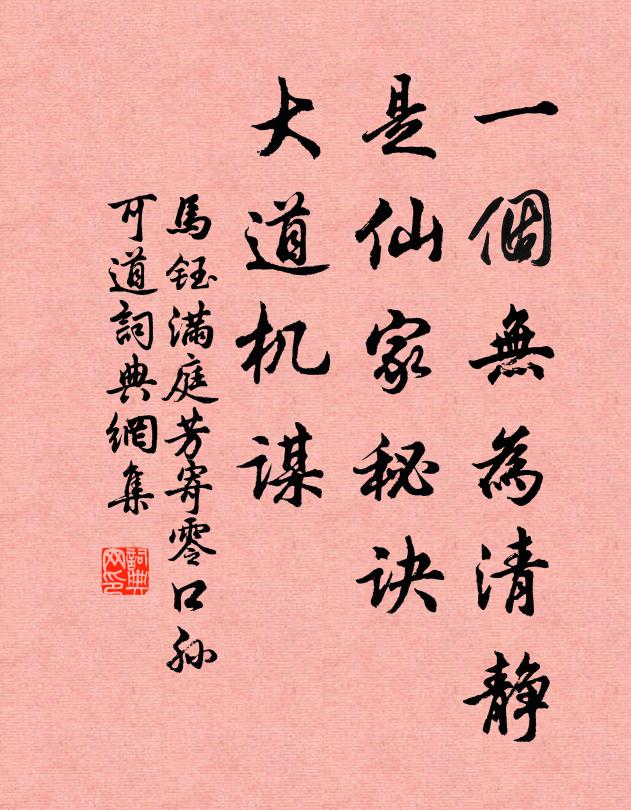 一個無為清静
是仙家秘诀
大道机谋
馬鈺滿庭芳寄零口孙
可道詞典網集
詞典网印